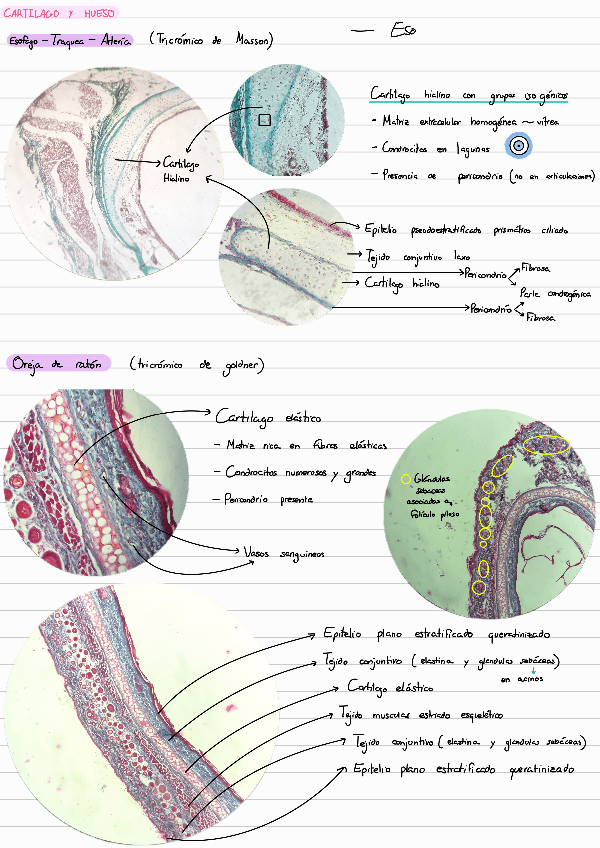 CARTILAGO Y HUESO
Esofago - Traquea - Arteria (Tricrómico de Masson)
— Eso
Cartilago hialino con grupos isogénicos
- Matriz extracelular homogénea ~ vitrea
- Condrocitos en lagunas
- Presencia de pericondrio (no en articulaciones)
Cartilago
Hialino
Epitelio pseudoestratificado prismático ciliado
Tejido conjuntivo laxo
Pericondrio
Fibrosa
Parte condrogénica
Cartilago hialino
Pericondrio
Fibrosa
Oreja de ratón (tricrómico de goldner)
Cartilago elástico
- Matriz rica en fibras elásticas
- Condrocitos numerosos y grandes
- Pericondrio presente
Vasos sanguineos
Glándulas
sebaceas
asociadas a
Foliculo piloso
Epitelio plano estratificado queratinizado
Tejido conjuntivo (elastina y glandulas sebáceas)
en acinos
Cartilago elástico
Tejido muscular estriado esquelético
Tejido conjuntivo (elastina y glandulas sebáceas)
Epitelio plano estratificado queratinizado